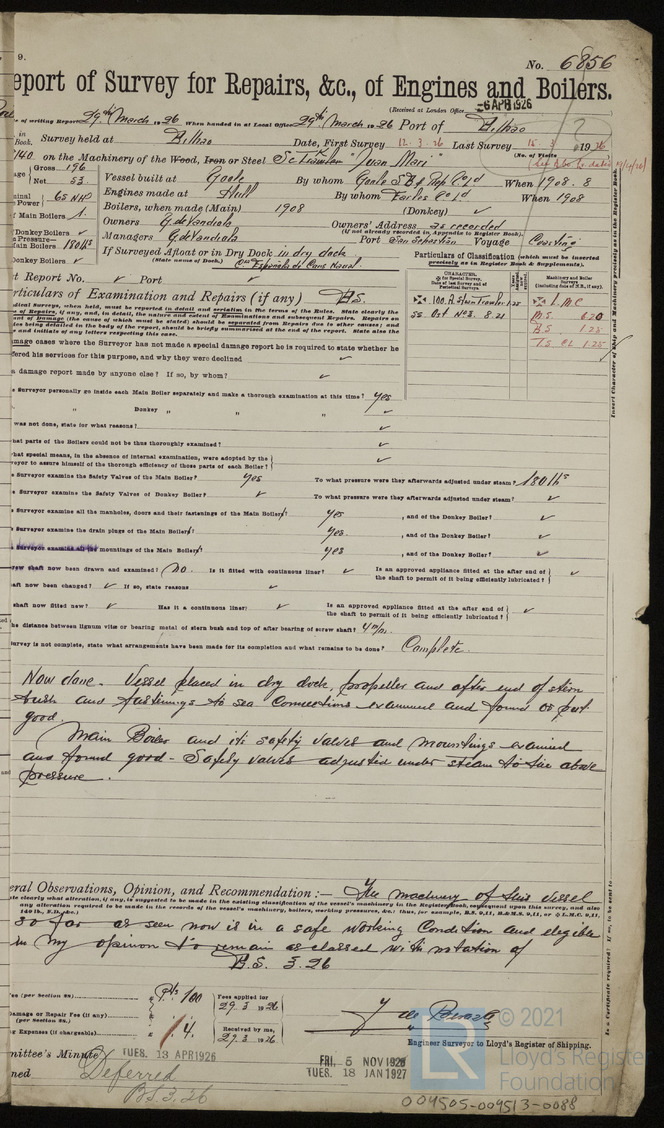 9.
No. 6856
eport of Survey for Repairs, &c., of Engines and Boilers.
(Received at London Office
-6 APR 1926
e of writing Report 29th March 1926 When handed in at Local Office 29th March 1926 Port of Bilbao
in Book. Survey held at Bilbao Date, First Survey 12.3.26 Last Survey 15.3 1926
(No. of Visits
140 on the Machinery of the Wood, Iron or Steel Sc Steamer "Juan Mari"
Gross 196
Net 53
Vessel built at Goole By whom Goole SB & Rep Co Ld When 1908.8
Engines made at Hull By whom Co Ld When 1908
Power 65 NHP
Main Boilers 1. Boilers, when made (Main) 1908 (Donkey) ✓
Owners G. de Vandiola Owners' Address as recorded
(if not already recorded in Appendix to Register Book).
Donkey Boilers ✓
Managers G. de Vandiola Port San Sebastian Voyage Coasting
Pressure—
Main Boilers 180 lbs
Donkey Boilers ✓
If Surveyed Afloat or in Dry Dock in dry dock
(State name of Dock.)
Particulars of Classification (which must be inserted precisely as in Register Book & Supplements).
t Report No. ✓ Port ✓
CHARACTER.
Machinery and Boiler Surveys
(including date of N.B., if any).
articulars of Examination and Repairs (if any) B.S.
✠ 100.A Steam Trawler 1.25
SS. No 3. 8.21
✠ L.M.C
M.S. 6.20
B.S 1.25
T.S CL 1.25
Insert Character of Ship and Machinery precisely as in the Register Book.
mage cases where the Surveyor has not made a special damage report he is required to state whether he
fered his services for this purpose, and why they were declined ✓
a damage report made by anyone else? If so, by whom? ✓
e Surveyor personally go inside each Main Boiler separately and make a thorough examination at this time? yes
" Donkey " " " ✓
was not done, state for what reasons? ✓
hat parts of the Boilers could not be thus thoroughly examined? ✓
hat special means, in the absence of internal examination, were adopted by the
veyor to assure himself of the thorough efficiency of those parts of each Boiler? ✓
e Surveyor examine the Safety Valves of the Main Boiler? yes To what pressure were they afterwards adjusted under steam? 180 lbs
e Surveyor examine the Safety Valves of the Donkey Boiler? ✓ To what pressure were they afterwards adjusted under steam? ✓
e Surveyor examine all the manholes, doors and their fastenings of the Main Boilers? yes , and of the Donkey Boiler? ✓
e Surveyor examine the drain plugs of the Main Boilers? yes , and of the Donkey Boiler? ✓
e Surveyor examine all the mountings of the Main Boilers? yes , and of the Donkey Boiler? ✓
rew shaft now been drawn and examined? no. Is it fitted with continuous liner? ✓ Is an approved appliance fitted at the after end of the shaft to permit of it being efficiently lubricated? ✓
aft now been changed? ✓ If so, state reasons ✓
shaft now fitted new? ✓ Has it a continuous liner? ✓ Is an approved appliance fitted at the after end of the shaft to permit of it being efficiently lubricated? ✓
he distance between lignum vitæ or bearing metal of stern bush and top of after bearing of screw shaft? 4 m/m.
survey is not complete, state what arrangements have been made for its completion and what remains to be done? Complete.
Now done - Vessel placed in dry dock, propeller and after end of stern
bush and fastenings to sea connections examined and found or put
good.
Main Boiler and its safety valves and mountings examined
and found good - Safety valves adjusted under steam to the above
pressure.
eral Observations, Opinion, and Recommendation:— The machinery of this vessel
so far as seen now is in a safe working condition and eligible
in my opinion to remain as classed with notation of
B.S. 3.26
Is a Certificate required? If so, to be sent to
Fee (per Section 28) Pts 100
Fees applied for
29.3 1926
Damage or Repair Fee (if any)
(per Section 28.)
g Expenses (if chargeable) 4.
Received by me,
27.3 1926
Engineer Surveyor to Lloyd's Register of Shipping.
mittee's Minute TUES. 13 APR 1926
FRI. 5 NOV 1926
TUES. 18 JAN 1927
ned Deferred
BS. 3.26
© 2021
Lloyd's Register
Foundation
004505-004513-0088